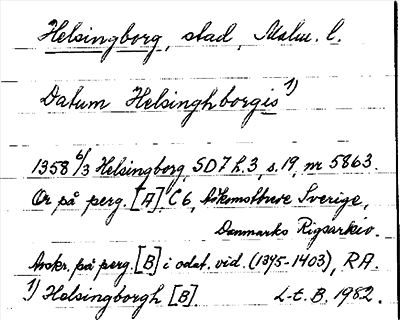 Helsingborg, stad, Malm. l.
Datum Helsinghborgis 1)
1358 6/3 Helsingborg, SD7 h.3, s.19, nr 5863.
Or på perg. [A] C6, Adkomstbreve Sverige,
Danmarks Rigsarkiv.
Avskr. på perg. [B] i odat. vid. (1395-1403), RA.
1) Helsingborgh [B]. L-t. B. 1982.